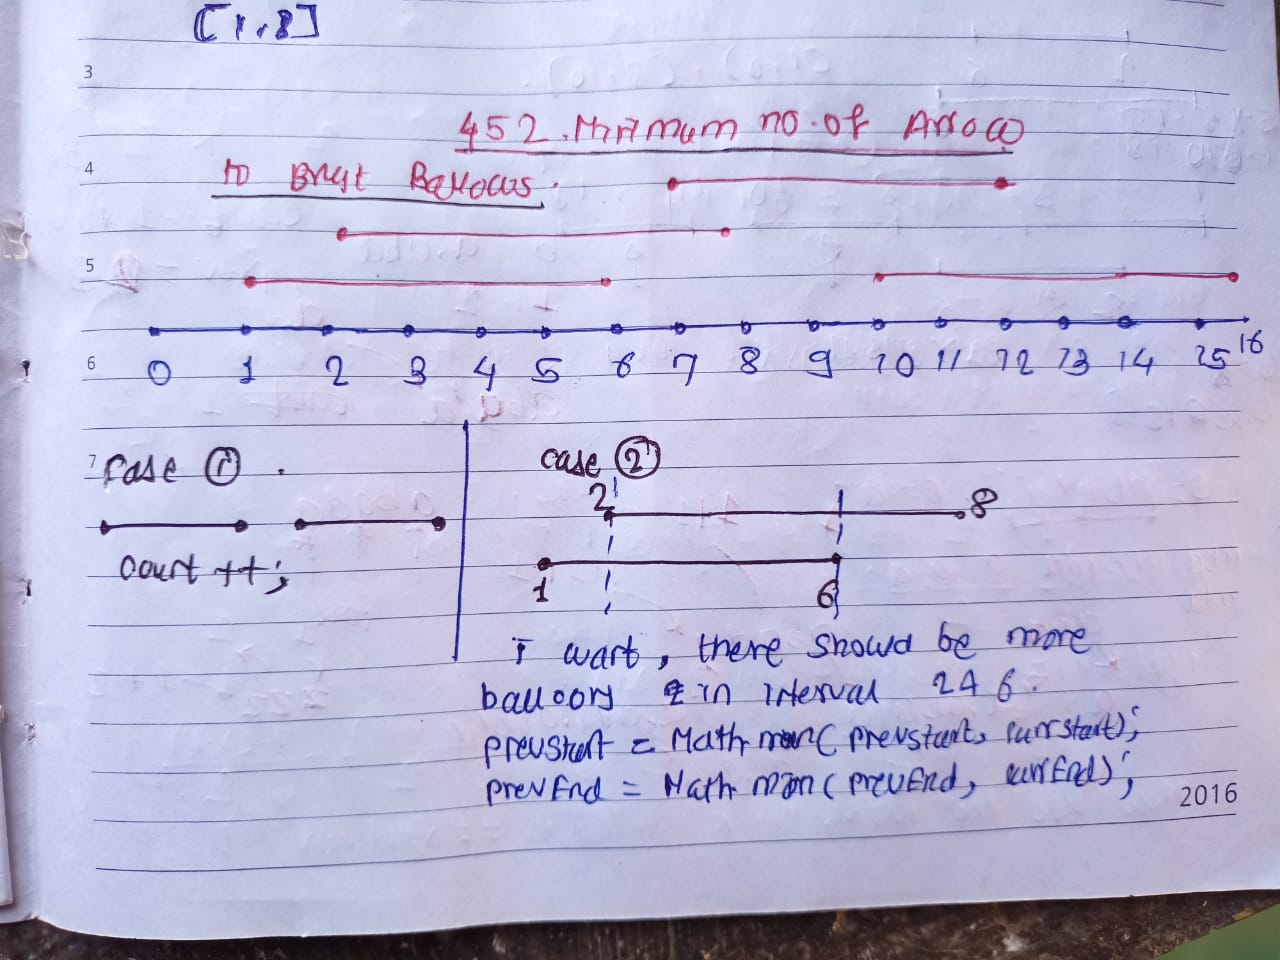 [1,8]
3
452. Minimum no. of Arrow
4
to Brust Balloons.
5
6
0 1 2 3 4 5 6 7 8 9 10 11 12 13 14 15 16
7
case ①.
case ②
2
8
count ++;
1
6
I want, there should be more
balloons in interval 2 & 6.
prevstart = Math. (prevstart, currstart);
prevEnd = Math. min (prevEnd, currEnd);
2016